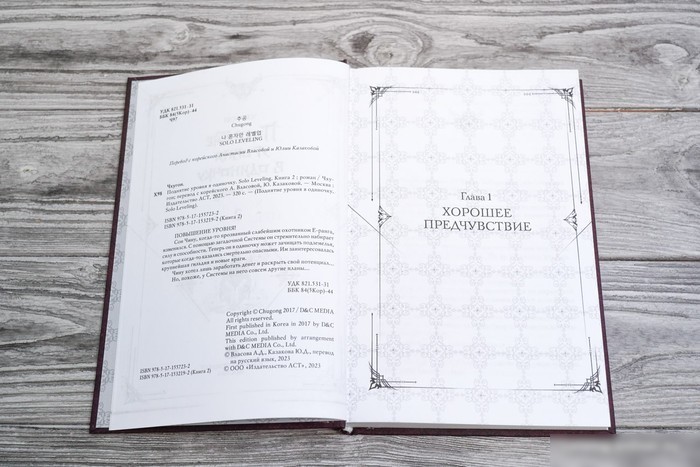 УДК 821.531-31
ББК 84(5Кор)-44
Ч97
추공
Chugong
나 혼자만 레벨업
SOLO LEVELING
Перевод с корейского Анастасии Власовой и Юлии Казаковой
Чхугон.
Х98 Поднятие уровня в одиночку. Solo Leveling. Книга 2 : роман / Чху-
гон; перевод с корейского А. Власовой, Ю. Казаковой. — Москва :
Издательство АСТ, 2023. — 320 с. — (Поднятие уровня в одиночку.
Solo Leveling).
ISBN 978-5-17-155723-2
ISBN 978-5-17-153219-2 (Книга 2)
ПОВЫШЕНИЕ УРОВНЯ!
Сон Чину, когда-то прозванный слабейшим охотником Е-ранга,
изменился. С помощью загадочной Системы он стремительно набирает
силу и способности. Теперь он в одиночку может зачищать подземелья,
которые когда-то казались смертельно опасными. Им заинтересовались
крупнейшая гильдия и новые враги.
Чину хотел лишь заработать денег и раскрыть свой потенциал...
Но, похоже, у Системы на него совсем другие планы...
УДК 821.531-31
ББК 84(5Кор)-44
Copyright © Chugong 2017 / D&C MEDIA
All rights reserved.
First published in Korea in 2017 by D&C
MEDIA Co., Ltd.
This edition published by arrangement
with D&C MEDIA Co., Ltd.
© Власова А.Д., Казакова Ю.Д., перевод
на русский язык, 2023
© ООО «Издательство АСТ», 2023
ISBN 978-5-17-155723-2
ISBN 978-5-17-153219-2 (Книга 2)
Глава 1
ХОРОШЕЕ
ПРЕДЧУВСТВИЕ